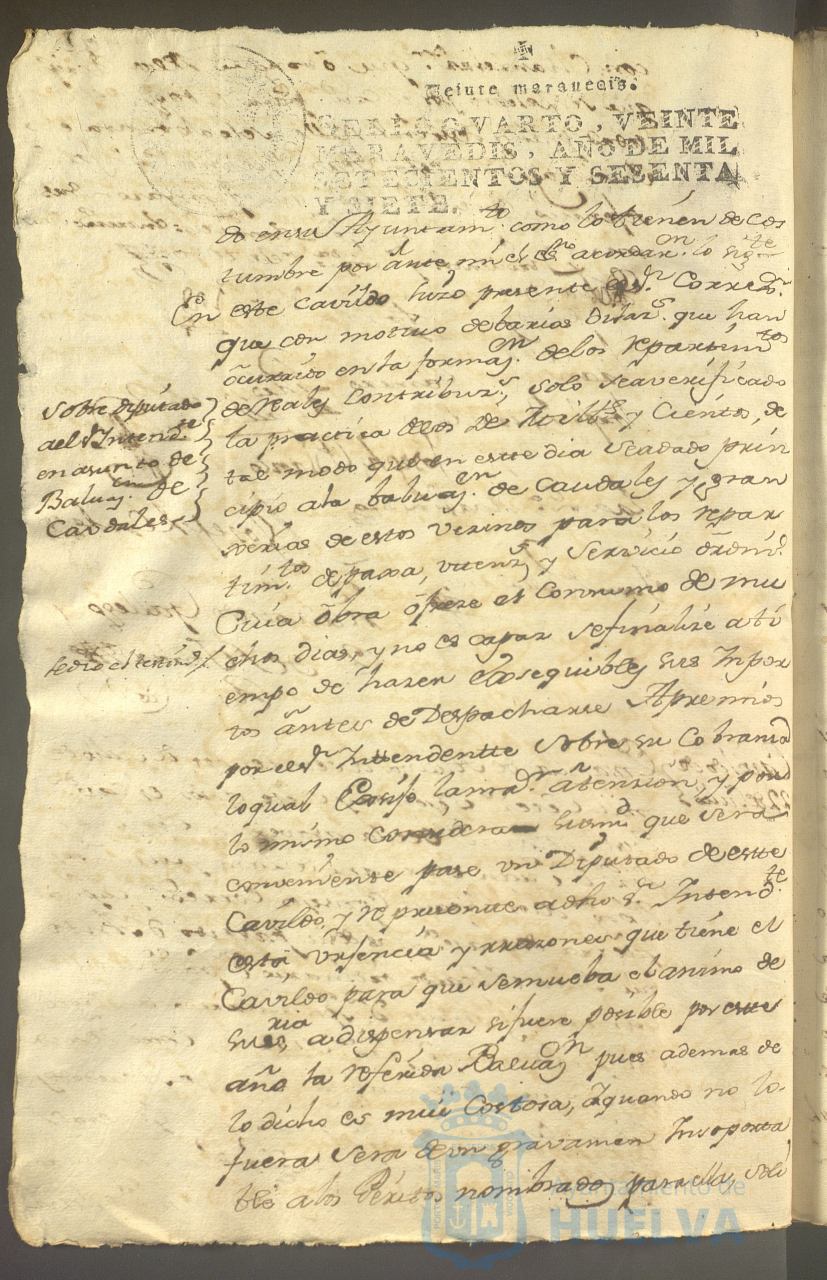 Veinte marauedis.
SELLO QVARTO, VEINTE
MARAVEDIS, AÑO DE MIL
SETECIENTOS Y SESENTA
Y SIETE.
do en su Ayuntam.to como lo tienen de cos
tumbre por ante mi el es.no acordar.on lo sig.te
En este Cavildo hizo presente el s.r Corred.r
que con motivo de barias Dilaz.s que han
ocurrido en la formaz.on de los repartim.tos
de Reales Contribuz.s solo se a verificado
la practica de los de Mill.s y Cientos, de
tal modo que en este dia se a dado prin
cipio a la Baluaz.on de Caudales y gran
xerias de estos vezinos para los repar
tim.tos de paxa, utenz.s y Servicio Ordin.o
Cuia obra ofreze el Consumo de mu
chos dias, y no es capaz se finalize a ti
empo de hazer exsequibles sus Impor
tos antes de Despacharse Apremios
por el s.r Intendentte sobre su Cobranza
lo qual Exsije la ma.r atension, y por
lo mismo considera su m.d que sera
conveniente pase un Diputado de este
Cavildo, y represente a dho s.r Intend.te
esta urjencia y rrazones que tiene el
Cavildo para que se mueba el animo de
su s.ria a dispensar si fuere posible por este
año la referida Baluaz.on pues ademas de
lo dicho es mui Costosa, y quando no lo
fuera sera de un gravamen Insoporta
ble a los Peritos nombrados para ella, soli
Sobre diputado
al s.r Intend.te
en asunto de
Baluaz.on de
Caudales
Ayuntamiento de
HUELVA